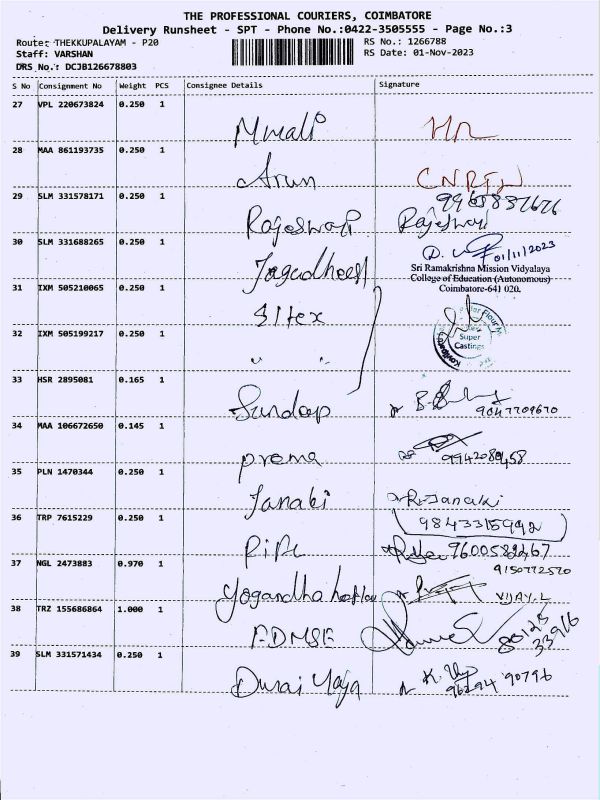 THE PROFESSIONAL COURIERS, COIMBATORE
Delivery Runsheet - SPT - Phone No.:0422-3505555 - Page No.:3
Route: THEKKUPALAYAM - P20
Staff: VARSHAN
DRS No.: DCJB126678803
RS No.: 1266788
RS Date: 01-Nov-2023
S No Consignment No Weight PCS Consignee Details Signature
27 VPL 220673824 0.250 1
28 MAA 861193735 0.250 1 Arun
29 SLM 331578171 0.250 1 Rajeswari Rajeswari
30 SLM 331688265 0.250 1 01/11/2023
Sri Ramakrishna Mission Vidyalaya
College of Education (Autonomous)
Coimbatore-641 020.
31 IXM 505210065 0.250 1
32 IXM 505199217 0.250 1 " "
Super
Castings
33 HSR 2895081 0.165 1 Sundeep 9047709670
34 MAA 106672650 0.145 1 prema
35 PLN 1470344 0.250 1 Janaki R. Janaki
9843315992
36 TRP 7615229 0.250 1
37 NGL 2473883 0.970 1 9150772570
VIJAY.L
38 TRZ 155686864 1.000 1
39 SLM 331571434 0.250 1 Durai
96294 90796